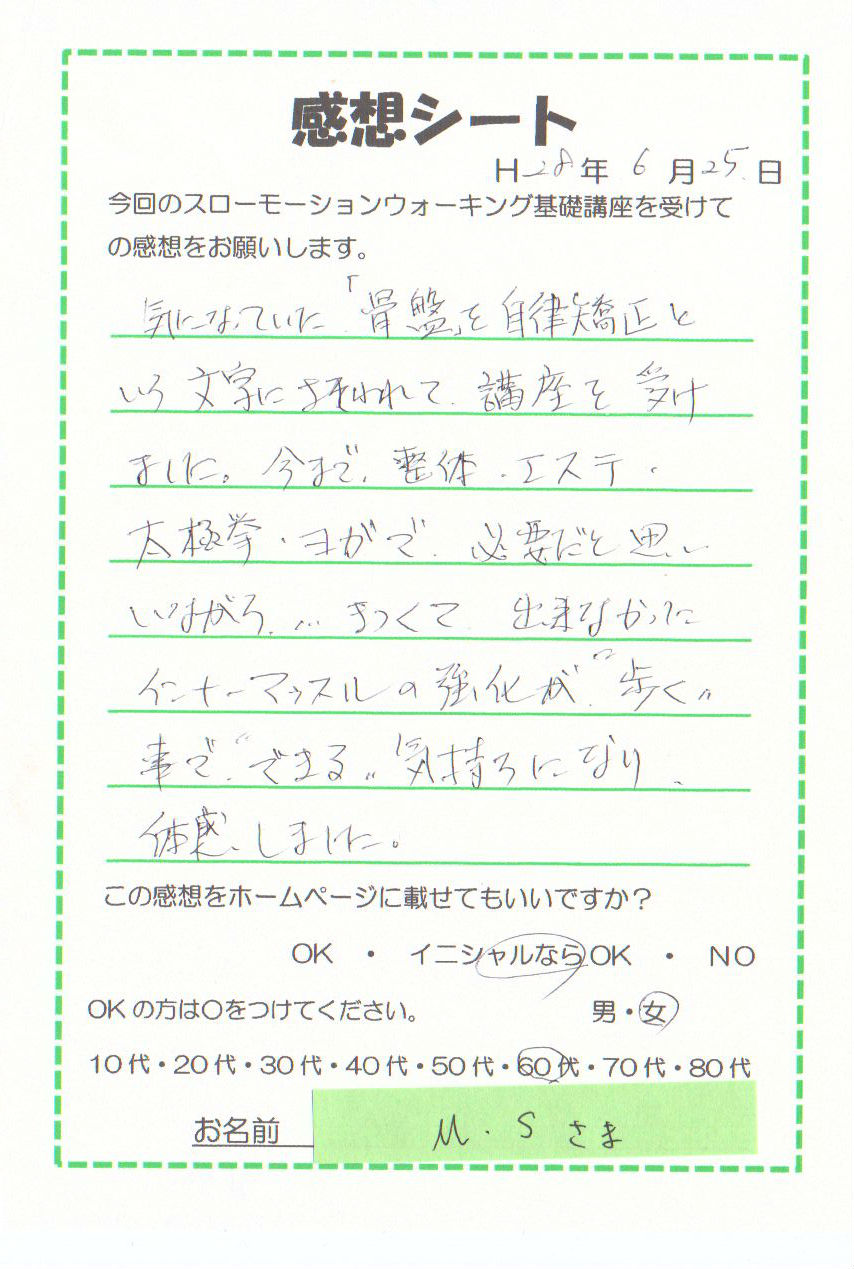 感想シート
H28年 6月25.日
今回のスローモーションウォーキング基礎講座を受けて
の感想をお願いします。
気になっていた「骨盤」を自律矯正と
いう文字にさそわれて、講座を受け
ました。今まで、整体・エステ・
太極拳・ヨガで、必要だと思い
いながら、… きつくて 出来なかった
インナーマッスルの強化が〝歩く〟
事で〝できる〟気持ちになり、
体感しました。
この感想をホームページに載せてもいいですか？
OK ・ イニシャルならOK ・ NO
OKの方は○をつけてください。 男・女
10代・20代・30代・40代・50代・60代・70代・80代
お名前 M・S さま